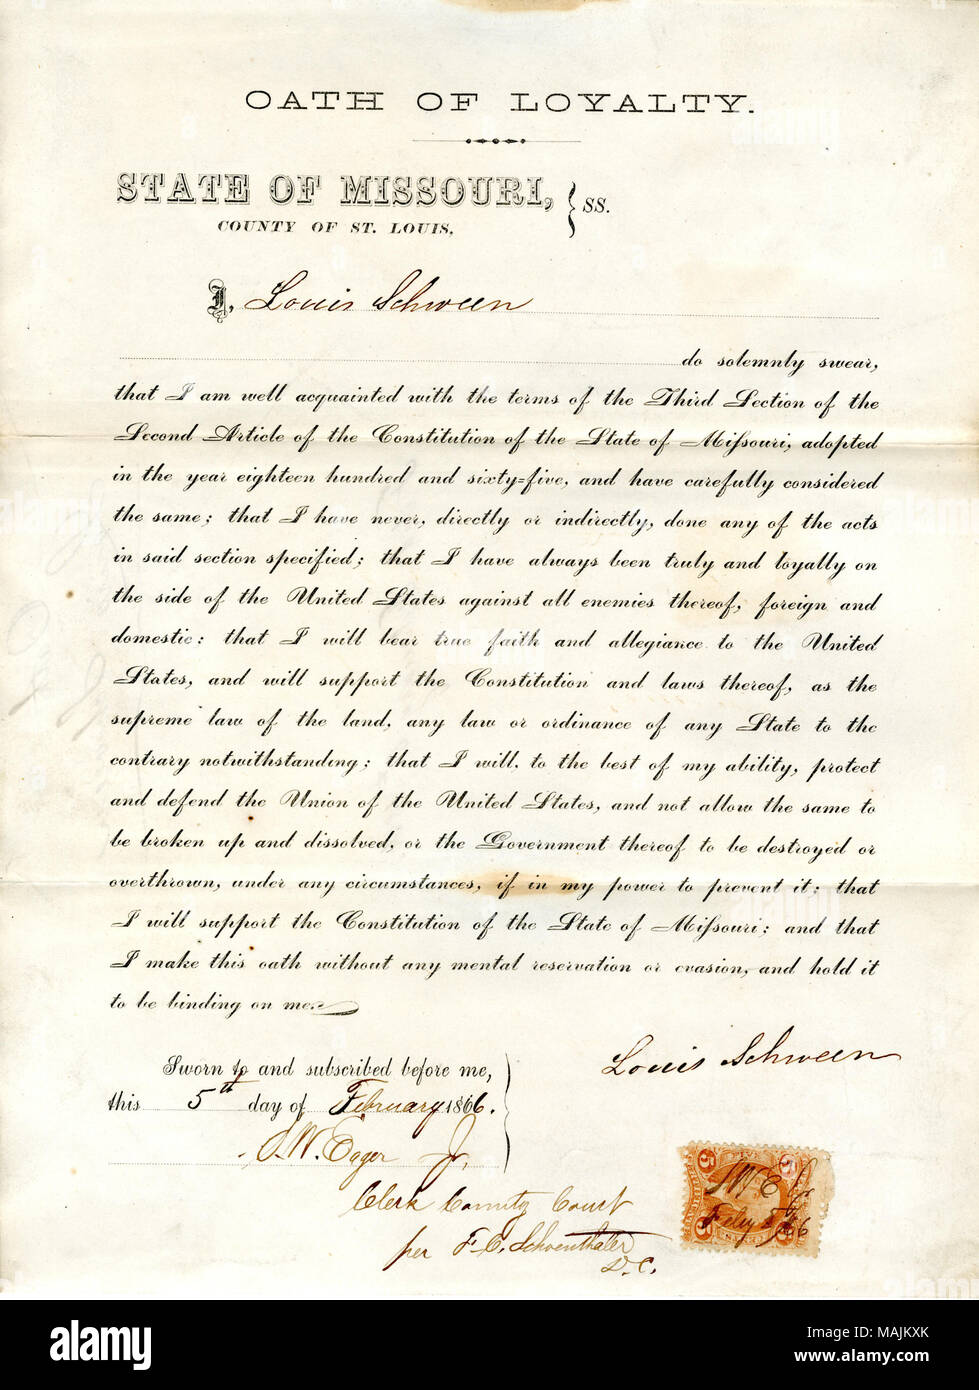 OATH OF LOYALTY.
STATE OF MISSOURI, } SS.
COUNTY OF ST. LOUIS.
I, Louis Schween
do solemnly swear,
that I am well acquainted with the terms of the Third Section of the
Second Article of the Constitution of the State of Mißouri, adopted
in the year eighteen hundred and sixty=five, and have carefully considered
the same; that I have never, directly or indirectly, done any of the acts
in said section specified; that I have always been truly and loyally on
the side of the United States against all enemies thereof, foreign and
domestic: that I will bear true faith and allegiance to the United
States, and will support the Constitution and laws thereof, as the
supreme law of the land, any law or ordinance of any State to the
contrary notwithstanding; that I will, to the best of my ability, protect
and defend the Union of the United States, and not allow the same to
be broken up and dissolved, or the Government thereof to be destroyed or
overthrown, under any circumstances, if in my power to prevent it; that
I will support the Constitution of the State of Mißouri; and that
I make this oath without any mental reservation or evasion, and hold it
to be binding on me.
Louis Schween
Sworn to and subscribed before me,
this 5th day of February 1866.
S. W. Eager Jr.
Clerk County Court
per F. C. Schoenthaler
D. C.
5 5
S W E Jr
Feby 5/66
5 5
alamy
Image ID: MAJKXK
www.alamy.com